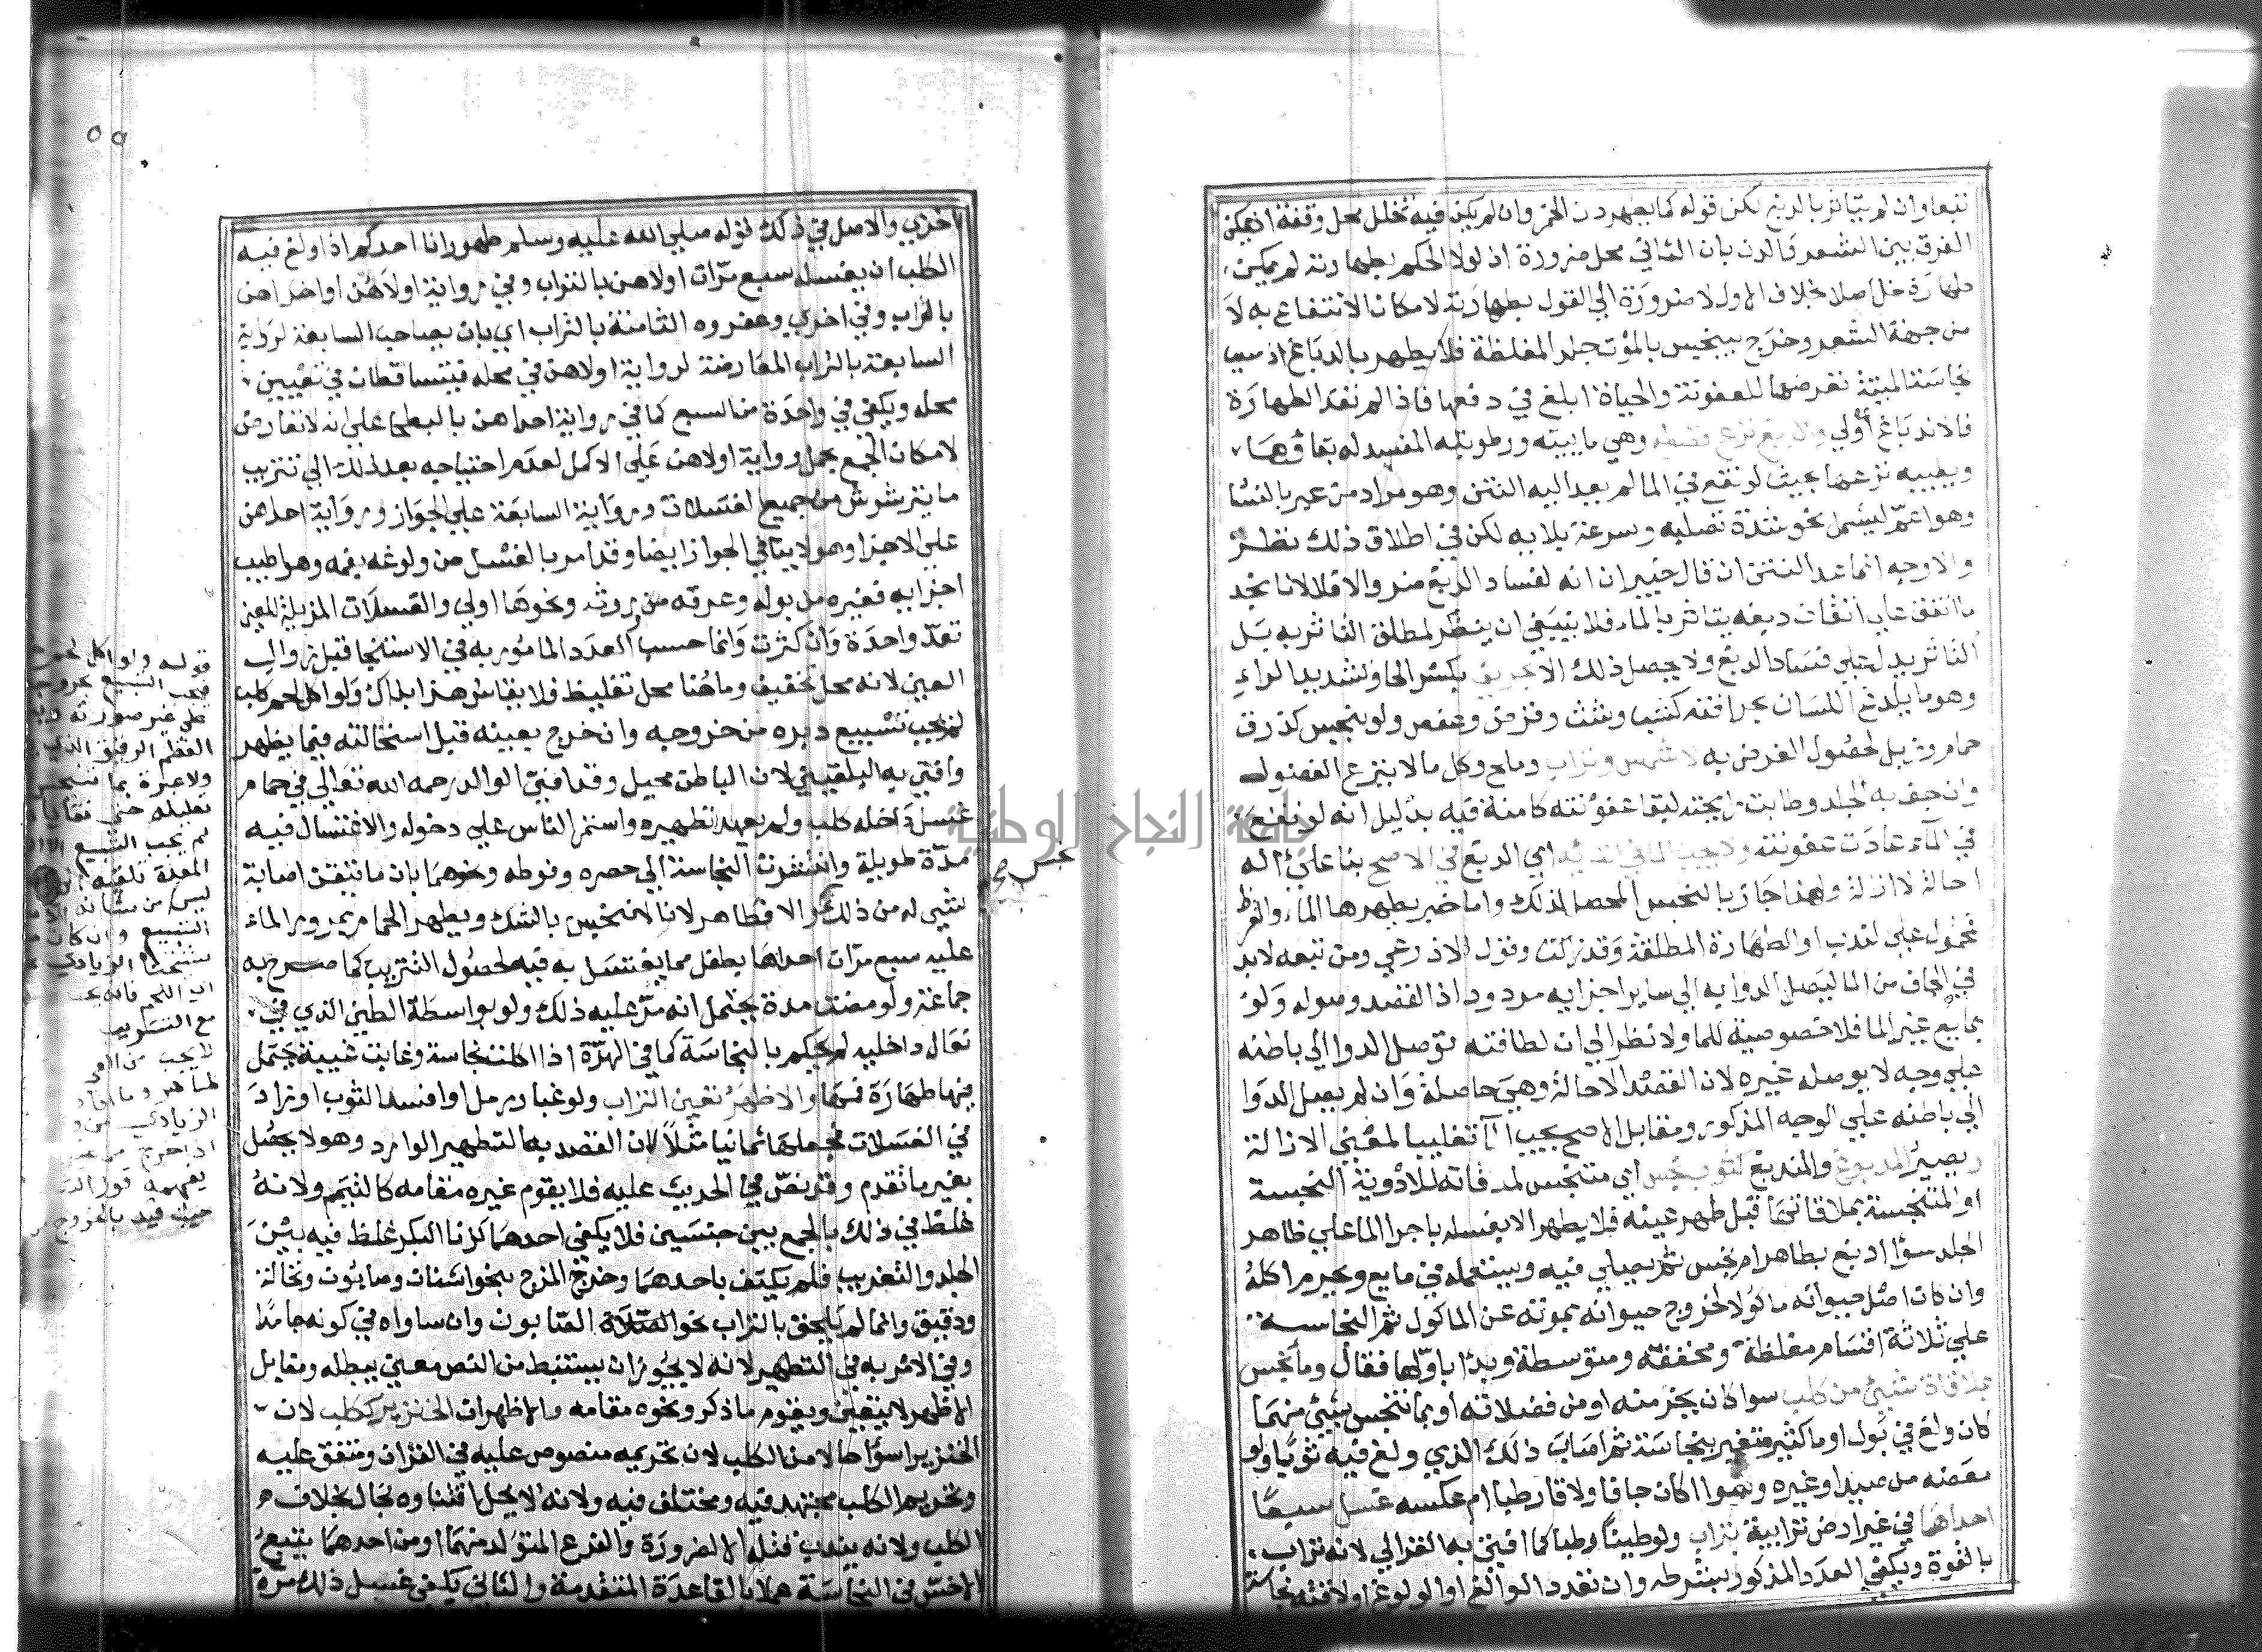 تبعا وان لم يتاثر بالدبغ لكن قوله كما يطهر دن الخمر وان لم يكن فيه تخلل محل وقفة اذ يمكن
الفرق بين الشعر والدن بان الثاني محل ضرورة اذ لولا الحكم بطهارته لم يمكن
طهارة خل اصلا بخلاف الاول لا ضرورة الي القول بطهارته لامكان الانتفاع به لا
من جهة الشعر وخرج بينجس بالموت جلد المغلظة فلا يطهر بالدباغ اذ سبب
نجاسة الميتة تعرضها للعفونة والحياة ابلغ في دفعها فاذا لم تفد الطهارة
فالاندباغ اولي والدبغ نزع فضوله وهي مائيته ورطوبته المفسد له بقاؤها
ويطيبه نزعها بحيث لو نقع في الما لم يعد اليه النتن وهو مراد من عبر بالفساد
وهو اعم ليشمل نحو شدة تصلبه وسرعة بلايه لكن في اطلاق ذلك نظر
والاوجه انما عدا النتن ان قال خبير ان انه لفساد الدبغ ضر والا فلا لانا نجد
ما اتفق علي اتقان دبغه يتاثر بالماء فلا ينبغي ان ينظر لمطلق التاثر به بل
التاثر يدل علي فساد الدبغ ولا يحصل ذلك الا بحريف بكسر الحا وتشديد الراء
وهو ما يلدغ اللسان بحرافته كشب وشث وقرض وعفص ولو بنجس كذرق
حمام وزبل لحصول الغرض به لا شمس وتراب وملح وكل ما لا ينزع الفضول
وان جف به الجلد وطابت رايحته لبقا عفونته كامنة فيه بدليل انه لو نقع
في الماء عادت عفونته ولا يجب الما في اثنايه اي الدبغ في الاصح بنا علي انه
احالة لا ازالة ولهذا جاز بالنجس المحصل لذلك واما خبر يطهرها الماء والقرظ
محمول علي الندب او الطهارة المطلقة وقد زكت وقول الاذرعي ومن تبعه لابد
في الجاف من الما ليصل الدوا به الي ساير اجزايه مردود اذ القصد وصوله ولو
بمايع غير الما فلا خصوصية للما ولا نظر الي ان لطافته توصل الدوا الي باطنه
علي وجه لا يوصله غيره لان القصد الاحالة وهي حاصلة وان لم يصل الدوا
الي باطنه علي الوجه المذكور ومقابل الاصح يجب الما تغليبا لمعني الازالة
ويصير المدبوغ والمندبغ كثوب نجس اي متنجس لملاقاته للادوية النجسة
او المتنجسة بملاقاتها قبل طهر عينه فلا يطهر الا بغسله باجرا الما علي ظاهر
الجلد سوا ادبغ بطاهر ام نجس ثم يصلي فيه ويستعمله في مايع ويحرم اكله
وان كان اصل حيوانه ماكولا لخروج حيوانه بموته عن الماكول ثم النجاسة
علي ثلاثة اقسام مغلظة ومخففة ومتوسطة وبدا باولها فقال وما نجس
بملاقاة شيئ من كلب سوا كان بجزء منه او من فضلاته او بما تنجس بشيئ منهما
كان ولغ في بول او ما كثير متغير بنجاسة ثم اصاب ذلك الذي ولغ فيه ثوبا ولو
بعضه من صيد او غيره وسوا اكان جافا ولاقا رطبا ام عكسه غسل سبعا
احداها في غير ارض ترابية بتراب ولو طينا رطبا كما افتي به الغزالي لانه تراب
بالقوة ويكفي العدد المذكور بشرطه وان تعدد الوالغ او الولوغ او لاقته نجاسة
اخري والاصل في ذلك قوله صلي الله عليه وسلم طهور انا احدكم اذا ولغ فيه
الكلب ان يغسله سبع مرات اولاهن بالتراب وفي رواية اولاهن او اخراهن
بالتراب وفي اخري وعفروه الثامنة بالتراب اي بان يصاحب السابعة لرواية
السابعة بالتراب المعارضة لرواية اولاهن في محله فيتساقطان في تعيين
محله ويكفي في واحدة من السبع كما في رواية احداهن بالبطحا علي انه لا تعارض
لامكان الجمع بحمل رواية اولاهن علي الاكمل لعدم احتياجه بعد ذلك الي تتريب
ما يترشرش من جميع الغسلات ورواية السابعة علي الجواز ورواية احداهن
علي الاجزا وهو لا ينافي الجواز ايضا وقد امر بالغسل من ولوغه بفمه وهو اطيب
اجزايه فغيره من بوله وعرقه من روثه ونحوها اولي والغسلات المزيلة للعين
تعد واحدة وان كثرت وانما حسب العدد المامور به في الاستنجا قبل زوال
العين لانه محل تخفيف وما هنا محل تغليظ فلا يقاس هذا بذاك ولو اكل لحم كلب
لم يجب تسبيع دبره من خروجه وان خرج بعينه قبل استحالته فيما يظهر
وافتي به البلقيني لان الباطن محيل وقد افتي الوالد رحمه الله تعالي في حمام
غسل داخله كلب ولم يعهد تطهيره واستمر الناس علي دخوله والاغتسال فيه
مدة طويلة وانتشرت النجاسة الي حصره وفوطه ونحوهما بان ما تيقن اصابة
شيئ له من ذلك نجس والا فطاهر لانا لا ننجس بالشك ويطهر الحمام بمرور الماء
عليه سبع مرات احداها بطفل مما يغتسل به فيه لحصول التتريب كما صرح به
جماعة ولو مضت مدة يحتمل انه مر عليه ذلك ولو بواسطة الطين الذي في
نعال داخليه لم يحكم بالنجاسة كما في الهرة اذا اكلت نجاسة وغابت غيبة يحتمل
فيها طهارة فمها والاظهر تعين التراب ولو غبار رمل او افسد الثوب او زاد
في الغسلات فجعلها ثمانيا مثلا لان القصد به التطهير الوارد وهو لا يحصل
بغير ما تقدم وقد نص في الحديث عليه فلا يقوم غيره مقامه كالتيمم ولانه
غلظ في ذلك بالجمع بين جنسين فلا يكفي احدهما كزنا البكر غلظ فيه بين
الجلد والتغريب فلم يكتف باحدهما وخرج المزج بنحو اشنان وصابون ونخالة
ودقيق وانما لم يلحق بالتراب نحو الصابون وان ساواه في كونه جامدا
وفي الامر به في التطهير لانه لا يجوز ان يستنبط من النص معني يبطله ومقابل
الاظهر لا يتعين ويقوم ما ذكر ونحوه مقامه والاظهر ان الخنزير ككلب لان
الخنزير اسوا حالا من الكلب لان تحريمه منصوص عليه في القران ومتفق عليه
وتحريم الكلب مجتهد فيه ومختلف فيه ولانه لا يحل اقتناوه بحال بخلاف
الكلب ولانه يندب قتله لا لضرورة والفرع المتولد منهما او من احدهما يتبع
الاخس في النجاسة عملا بالقاعدة المتقدمة والثاني يكفي غسل ذلك مرة
نجس صح
قوله ولو اكل لحم
يجب التسبيع بخروجه
علي غير صورته
العظم الرقيق الذي
ولا عبرة بما تنجس
لم يجب التسبيع
المعدة تلقيه
ليس من شانه
التسبيع وان كان
شيخنا الزيادي
اي اللحم فانه يجب
مع التتريب
لا يجب من
طاهر وما
الزيادي
اذا خرج من غير
يفهمه قول
حيث قيد بالخروج من
جامعة النجاح الوطنية